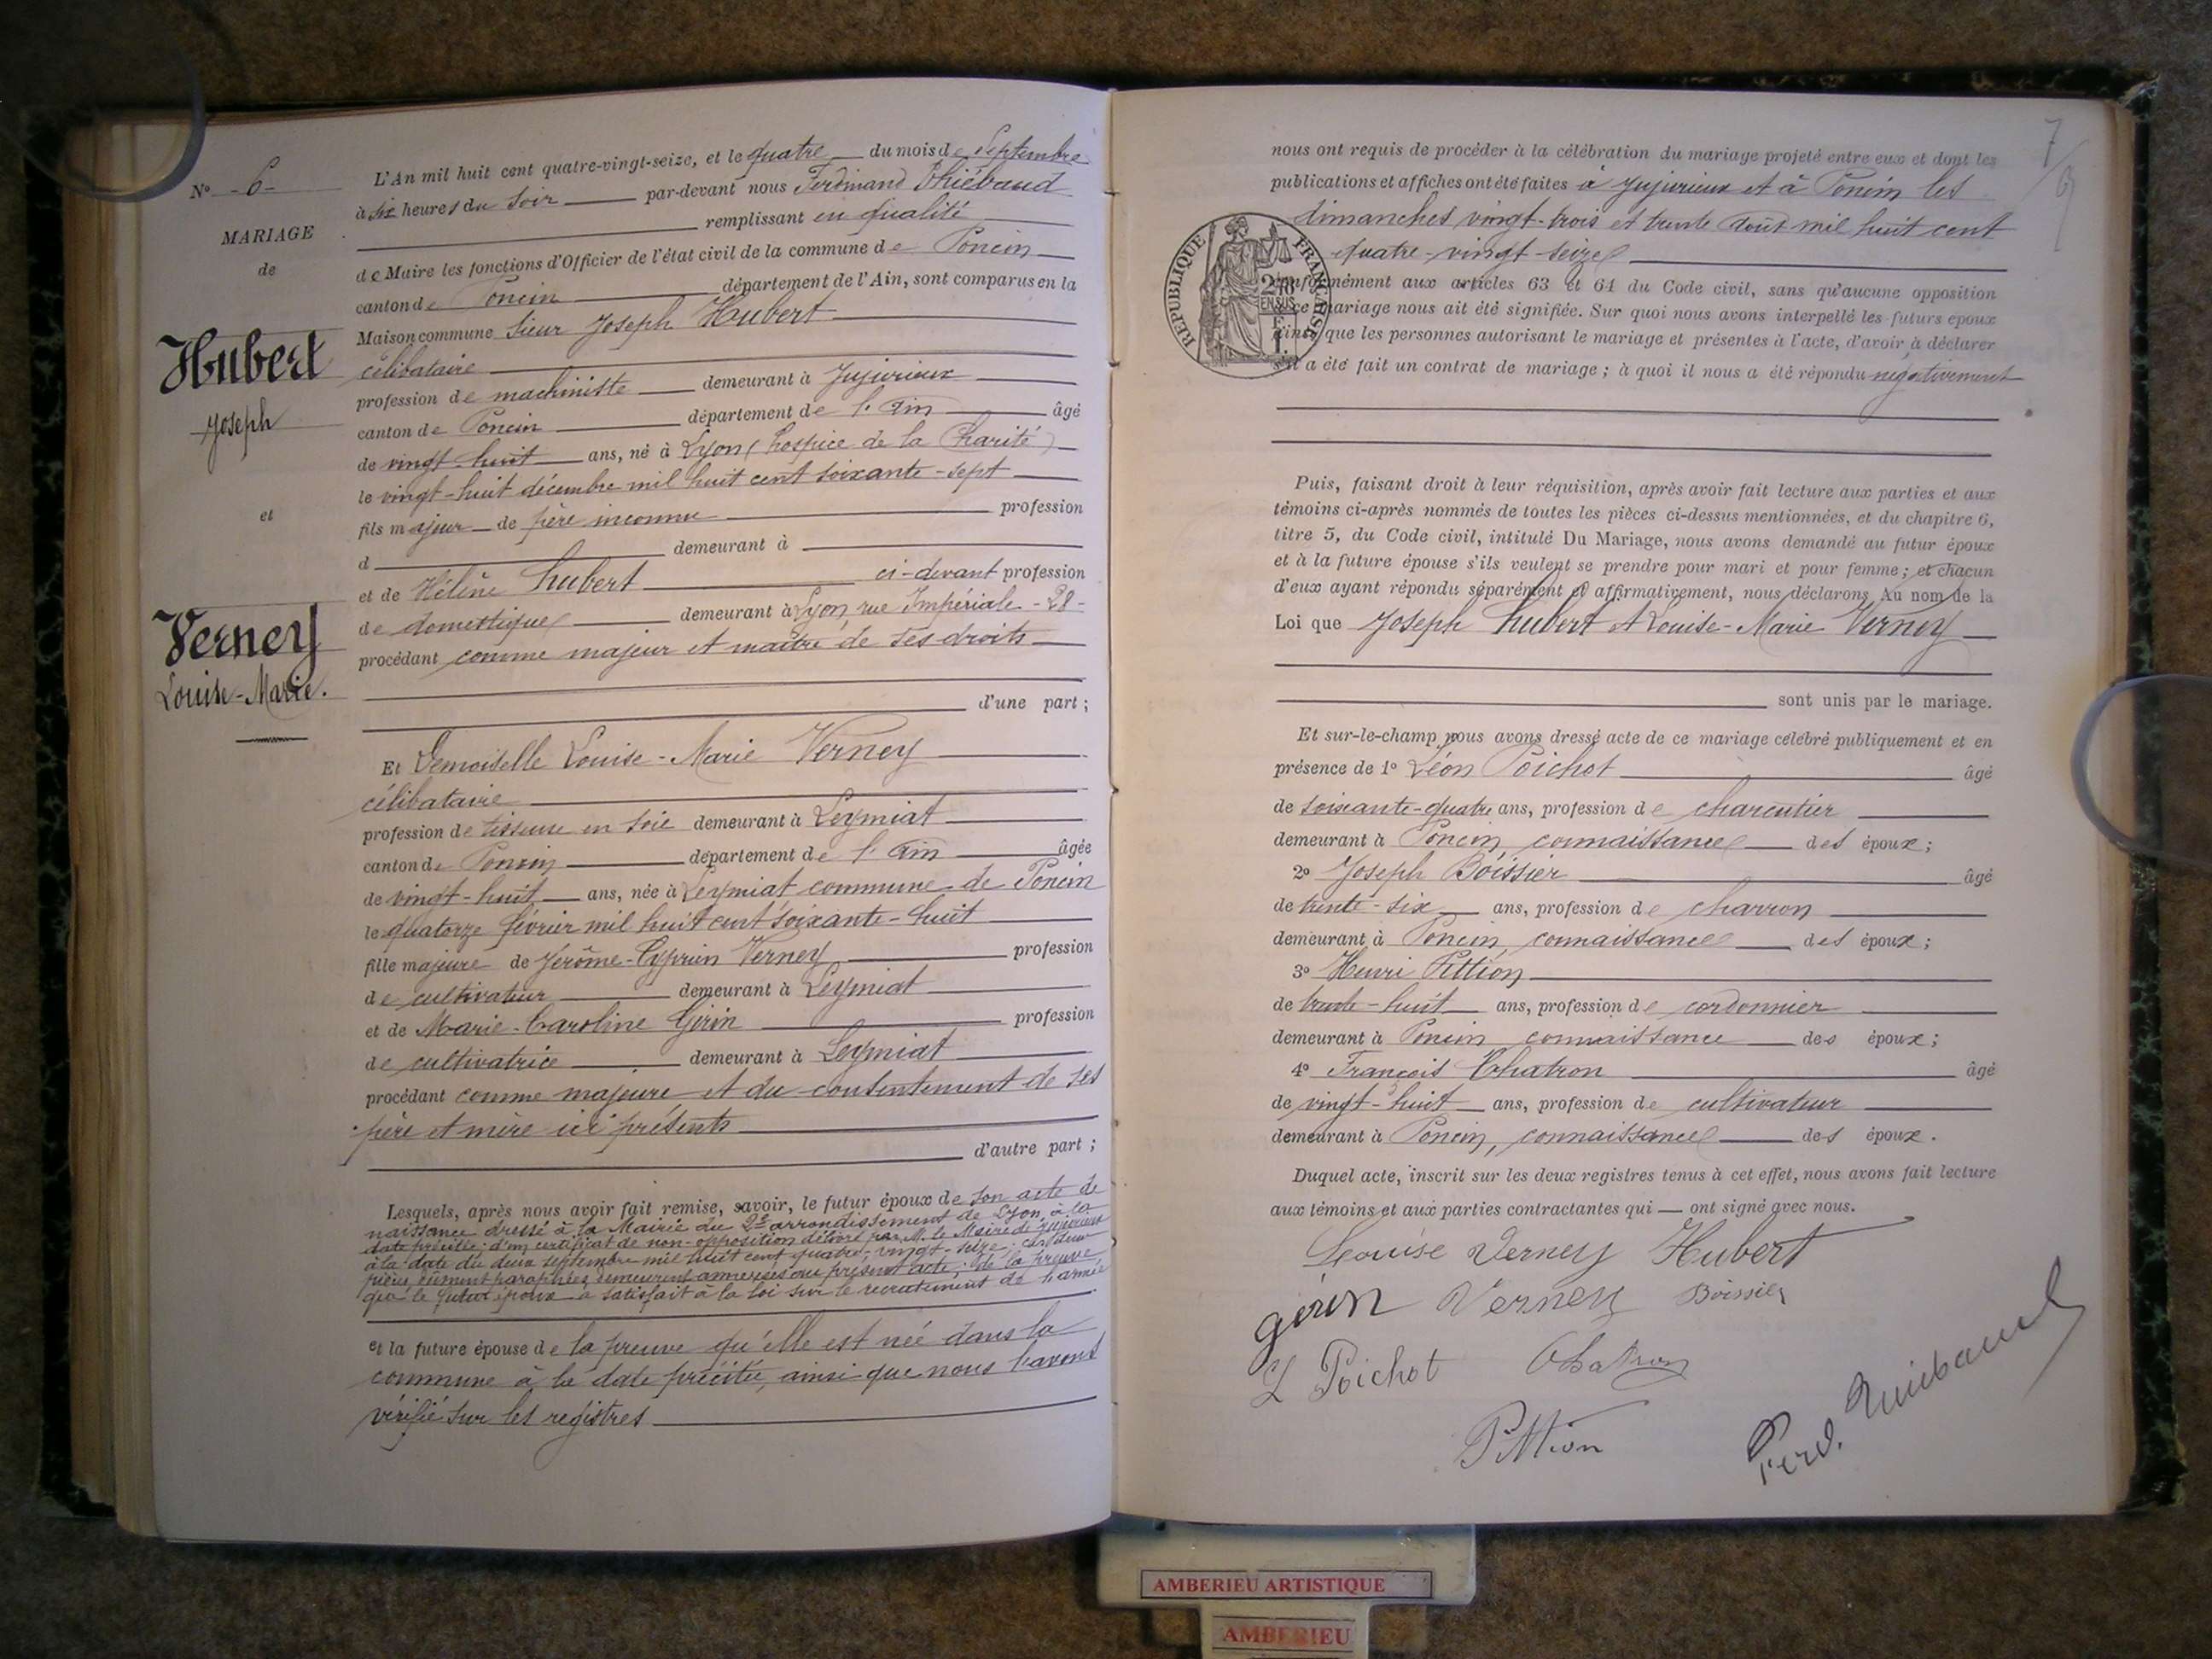 N° -6-
MARIAGE
de
Hubert
Joseph
et
Verney
Louise-Marie.
L'An mil huit cent quatre-vingt-seize, et le quatre du mois de Septembre
à six heures du soir par-devant nous Ferdinand Thiébaud
remplissant en qualité
de Maire les fonctions d'Officier de l'état civil de la commune de Poncin
canton de Poncin département de l'Ain, sont comparus en la
Maison commune Sieur Joseph Hubert
célibataire
profession de machiniste demeurant à Jujurieux
canton de Poncin département de l'Ain âgé
de vingt-huit ans, né à Lyon (hospice de la Charité)
le vingt-huit décembre mil huit cent soixante-sept
fils majeur de père inconnu profession
d demeurant à
et de Hélène Hubert ci-devant profession
de domestique demeurant à Lyon, rue Impériale -28-
procédant comme majeur et maître de ses droits
d'une part ;
Et Demoiselle Louise-Marie Verney
célibataire
profession de tisseuse en soie demeurant à Leymiat
canton de Poncin département de l'Ain âgée
de vingt-huit ans, née à Leymiat commune de Poncin
le quatorze février mil huit cent soixante-huit
fille majeure de Jérôme-Cyprien Verney profession
de cultivateur demeurant à Leymiat
et de Marie-Caroline Girin profession
de cultivatrice demeurant à Leymiat
procédant comme majeure et du consentement de ses
père et mère ici présents
d'autre part ;
Lesquels, après nous avoir fait remise, savoir, le futur époux de son acte de
naissance dressé à la Mairie du 2e arrondissement de Lyon, à la
date précitée ; d'un certificat de non-opposition délivré par M. le Maire de Jujurieux
à la date du deux septembre mil huit cent quatre-vingt-seize ; ces deux
pièces dûment paraphées demeurent annexées au présent acte ; de la preuve
que le futur époux a satisfait à la loi sur le recrutement de l'armée
et la future épouse de la preuve qu'elle est née dans la
commune à la date précitée, ainsi que nous l'avons
vérifié sur les registres
7
nous ont requis de procéder à la célébration du mariage projeté entre eux et dont les
publications et affiches ont été faites à Jujurieux et à Poncin les
dimanches vingt-trois et trente août mil huit cent
quatre-vingt-seize
RÉPUBLIQUE FRANÇAISE
EN SUS
conformément aux articles 63 et 64 du Code civil, sans qu'aucune opposition
à ce mariage nous ait été signifiée. Sur quoi nous avons interpellé les futurs époux
ainsi que les personnes autorisant le mariage et présentes à l'acte, d'avoir à déclarer
s'il a été fait un contrat de mariage ; à quoi il nous a été répondu négativement
Puis, faisant droit à leur réquisition, après avoir fait lecture aux parties et aux
témoins ci-après nommés de toutes les pièces ci-dessus mentionnées, et du chapitre 6,
titre 5, du Code civil, intitulé Du Mariage, nous avons demandé au futur époux
et à la future épouse s'ils veulent se prendre pour mari et pour femme ; et chacun
d'eux ayant répondu séparément et affirmativement, nous déclarons Au nom de la
Loi que Joseph Hubert et Louise-Marie Verney
sont unis par le mariage.
Et sur-le-champ nous avons dressé acte de ce mariage célébré publiquement et en
présence de 1° Léon Poichot âgé
de soixante-quatre ans, profession de charcutier
demeurant à Poncin, connaissance des époux ;
2° Joseph Boissier âgé
de trente-six ans, profession de charron
demeurant à Poncin, connaissance des époux ;
3° Henri Pittion
de trente-huit ans, profession de cordonnier
demeurant à Poncin connaissance des époux ;
4° François Chatron âgé
de vingt-huit ans, profession de cultivateur
demeurant à Poncin, connaissance des époux.
Duquel acte, inscrit sur les deux registres tenus à cet effet, nous avons fait lecture
aux témoins et aux parties contractantes qui ont signé avec nous.
Louise Verney Hubert
girin Verney Boissier
L Poichot Chatron
Pittion
Ferd. Thiébaud
AMBERIEU ARTISTIQUE
AMBERIEU